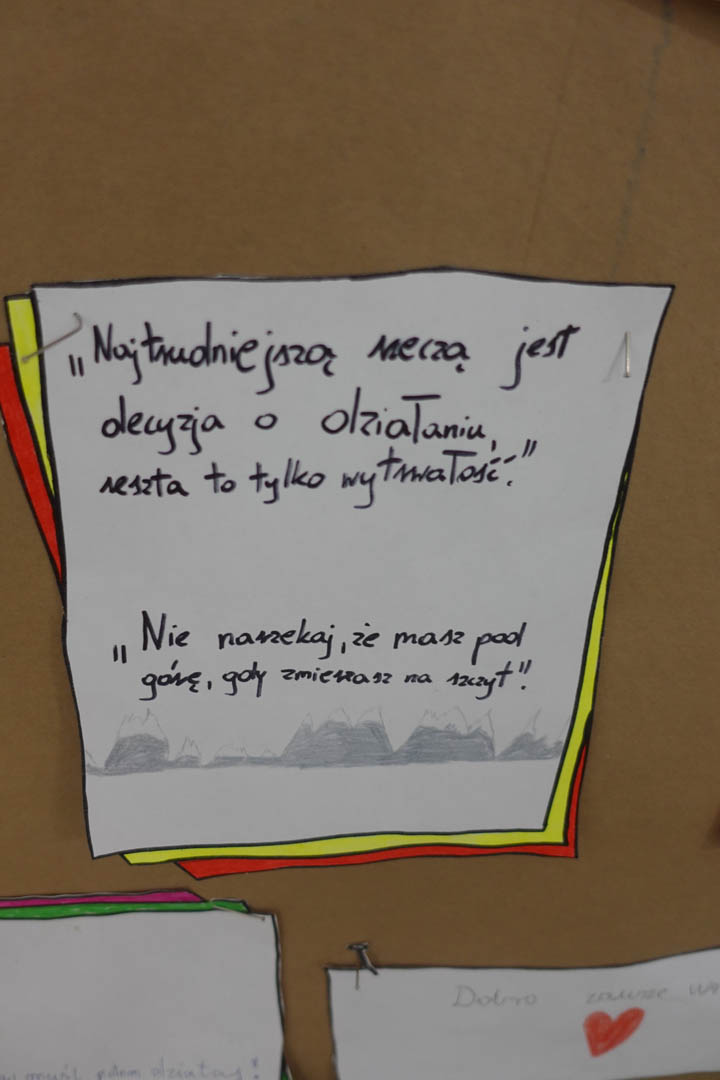 „Najtrudniejszą rzeczą jest
decyzja o działaniu,
reszta to tylko wytrwałość."
„Nie narzekaj, że masz pod
górę, gdy zmierzasz na szczyt".
myśl potem działaj!
Dobro zawsze